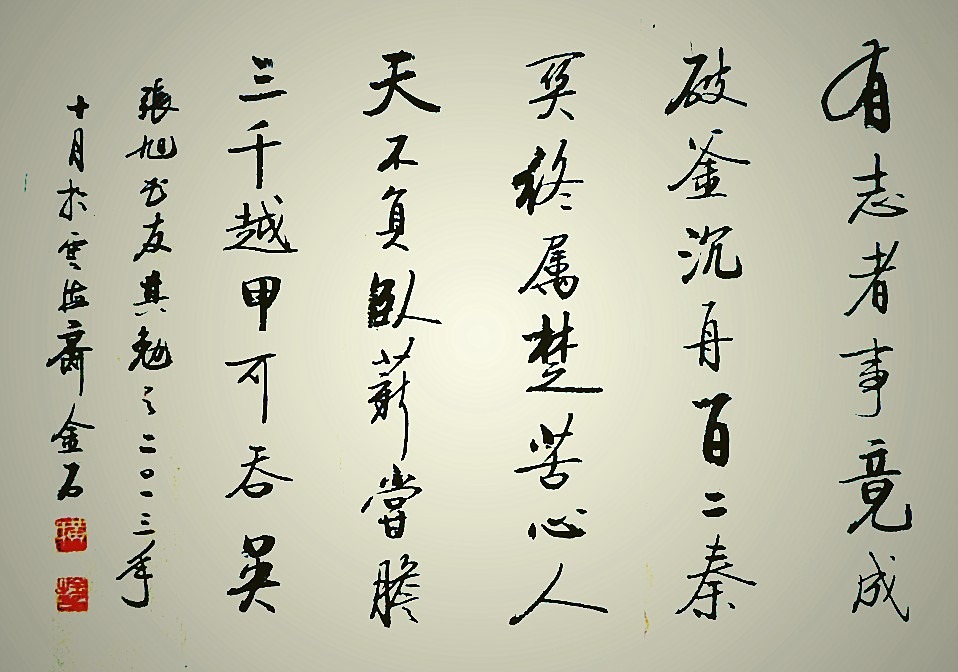 有志者事竟成
破釜沉舟百二秦
关终属楚苦心人
天不負臥薪嘗膽
三千越甲可吞吴
張旭书友其勉之二〇一三年
十月於雲斋金石